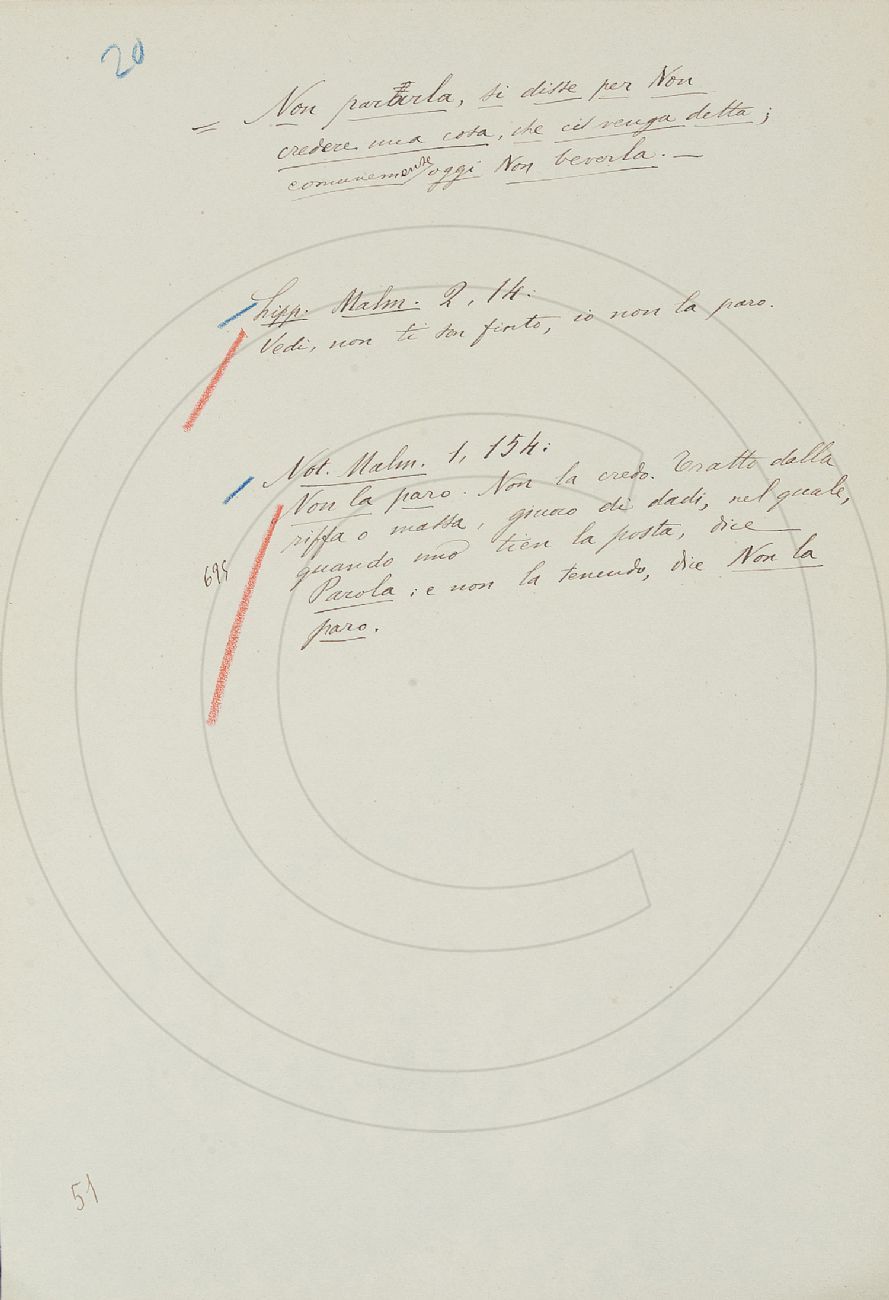 20
= Non pararla, si disse per Non
credere una cosa, che ci venga detta;
comunemente oggi Non beverla. —
Lipp. Malm. 2, 14:
Vedi, non ti son finto, io non la paro.
Not. Malm. 1, 154:
Non la paro. Non la credo. Tratto dalla
riffa o massa, giuoco di dadi, nel quale,
quando uno tien la posta, dice
Parola; e non la tenendo, dice Non la
paro.
51